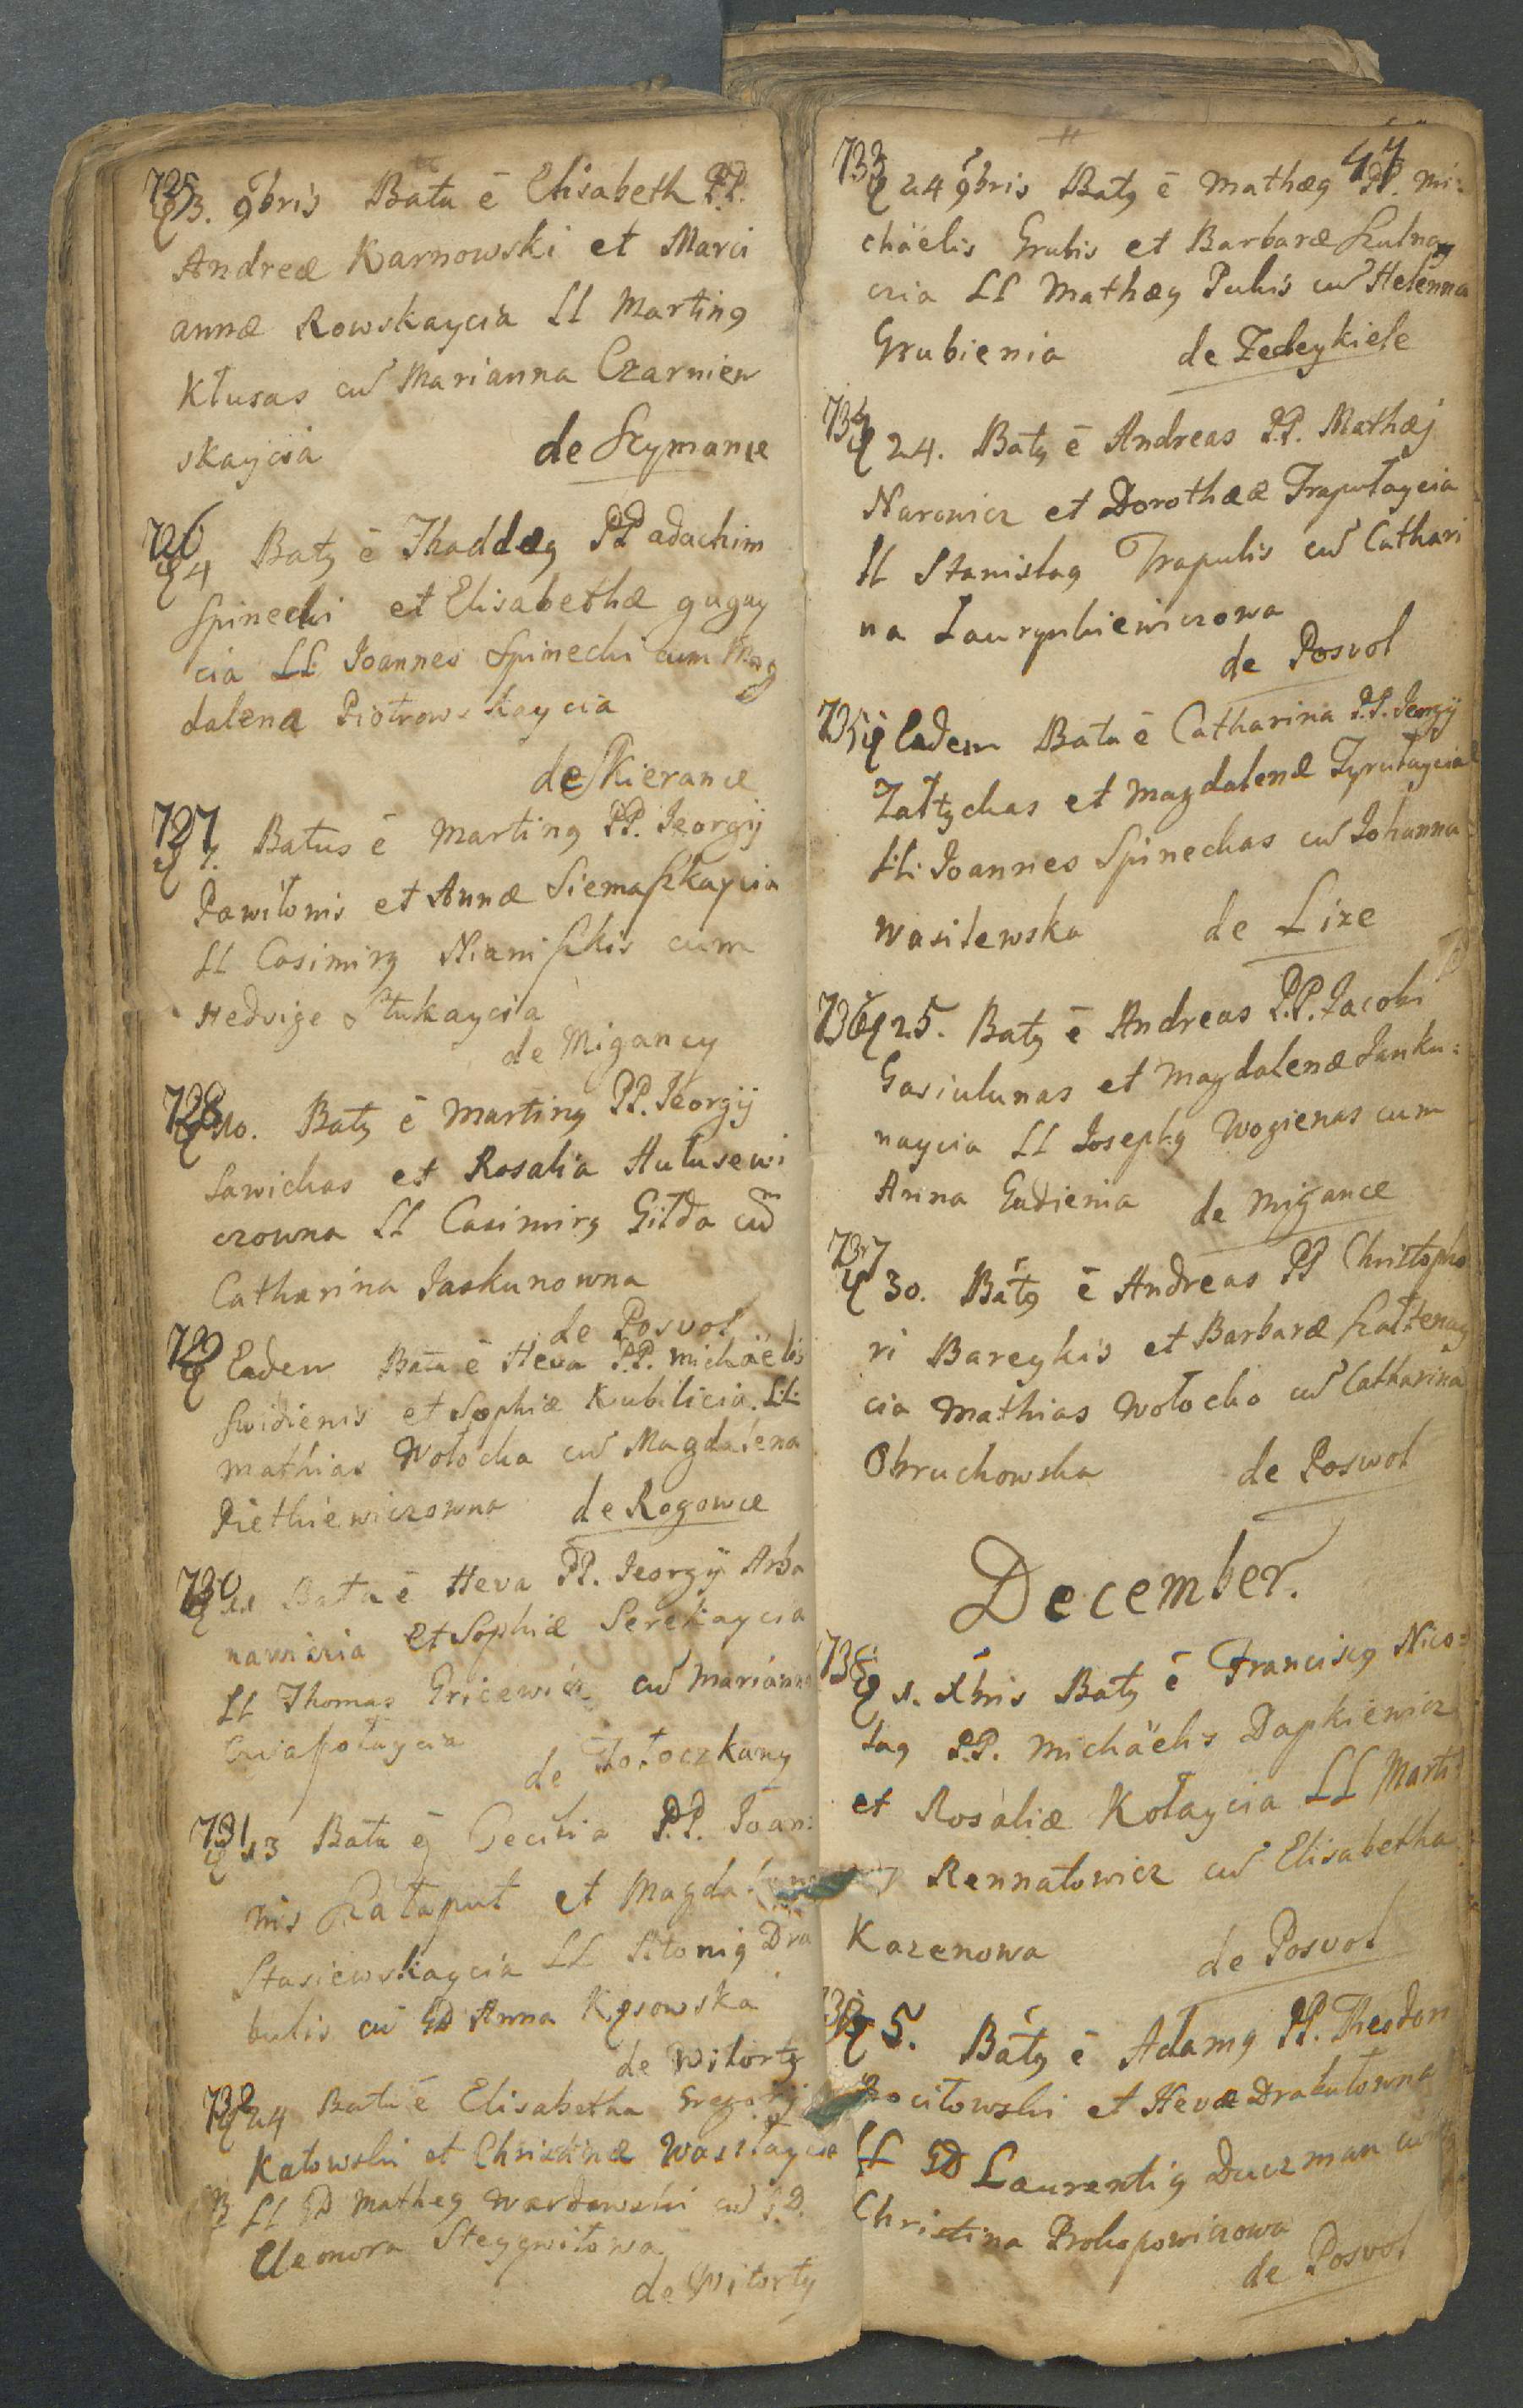 725
3. 9bris Bata ē Elisabeth P.P.
Andreæ Karnowski et Mari
annæ Rowskaycia LL Marting
Kłusas cū Marianna Czarniew
skaycia de Szymance
726
4 Batg ē Thaddæg PP adachim
Spinecki et Elisabethæ gugay
cia LL Joannes Spinecki cum Mag
dalena Piotrowskaycia
de Skierance
727
7. Batus ē Marting PP. Jeorgij
Pawiłonis et Annæ Siemaszkaycia
LL Casimirg Nianiszkis cum
Hedvige Stukaycia
de Migancy
728
10. Batg ē Marting PP. Jeorgij
Sawickas et Rosalia Hutusewi
czowna LL Casimirg Giłda cūm
Catharina Jaskunowna
de Posvol
729
Eadem Bata ē Heva P.P. Michaëlis
Swidienis et Sophiæ Kubilicia. L:L:
Mathias Wołocka cū Magdalena
Pietkiewiczowna de Rogowce
730
11 Bata ē Heva PP. Jeorgÿ Arba
nawicia et Sophiæ Serekaycia
LL Thomas Gricewicz cū Marianna
de Tołoczkany
731
13 Bata ē Cecilia P.P. Joan:
nis Rataput et Magda
Stasiewskaycia LL Dra
bulis cū GD Anna Kęsowska
de Witorty
732
24 Bata ē Elisabetha Gregorij
Katowski et Christinæ Wasiłaycia
LL GD Matheg Wardowski cū G.D.
Eleonora Steggwiłowa
de Witorty
44
733
24 9bris Batg ē Mathæg PP. Mi:
chäelis Grubis et Barbaræ Szulnay
czia LL Mathæg Pukis cū Helenna
Grubienia de Zedeykiele
734
24. Batg ē Andreas P.P. Mathæj
Narowicz et Dorothææ Traputaycia
LL Stanislag Trapulis cū Cathari
na Laurynkiewiczowa
de Posvol
735
Eadem Bata ē Catharina P.P. Jeorgÿ
Załtychas et Magdalenæ Tyrutaycia
L:L: Joannes Spineckas cū Johanna
Wasilewska de Lize
736
25. Batg ē Andreas P.P. Jacobi
Gasiulunas et Magdalenæ Janku:
naycia LL Josephg Wogienas cum
Anna Gudienia de Migance
737
30. Batg ē Andreas PP Christopho
ri Bareykis et Barbaræ Szałtenay
cia Mathias Wołocko cū Catharina
Obruchowska de Poswol
December.
738
1. Xbris Batg ē Franciscg Nico:
lag P.P. Michäelis Dapkiewicz
et Rosaliæ Kołaycia LL Marti:
Rennatowicz cū Elisabetha
Kazenowa de Posvol
5. Batg ē Adamg PP. Theodori
Rociłowski et Hevæ Drabułowna
LL GD Laurentig Duczman cū
Christina Prokopowiczowa
de Posvol